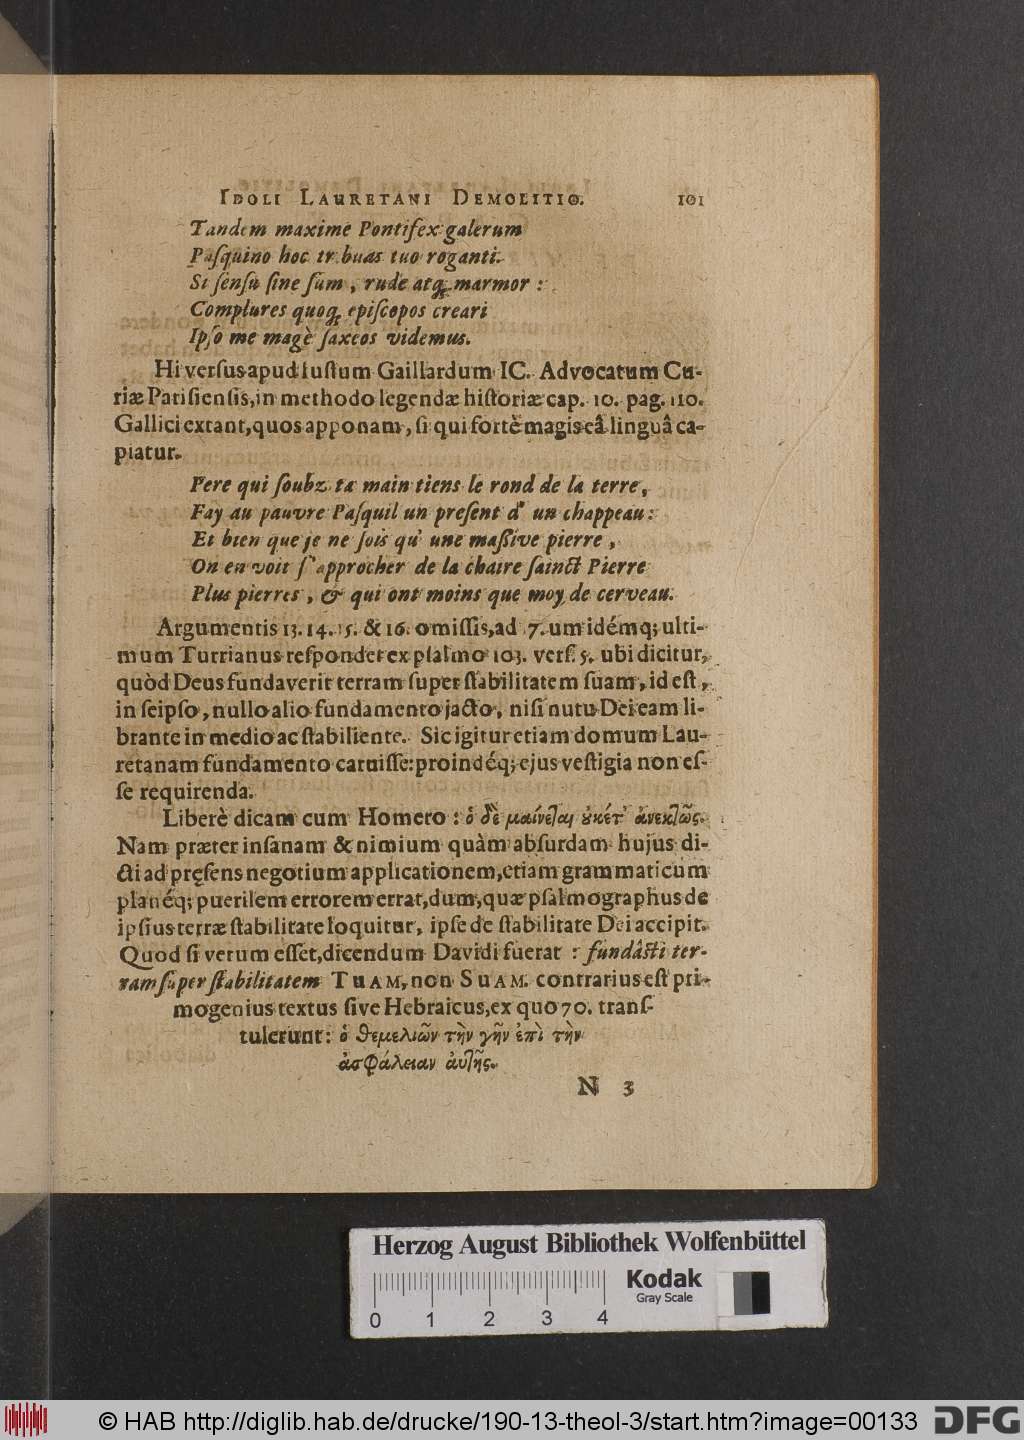 IDOLI LAURETANI DEMOLITIO. 101
Tandem maxime Pontifex galerum
Paſquino hoc tribuas tuo roganti.
Si ſenſu ſine ſum, rude atq; marmor:
Complures quoq; epiſcopos creari
Ipſo me magè ſaxeos videmus.
Hi verſus apud Iuſtum Gaillardum IC. Advocatum Cu-
riæ Pariſienſis, in methodo legendæ hiſtoriæ cap. 10. pag. 110.
Gallici extant, quos apponam, ſi qui fortè magis eâ linguâ ca-
piatur.
Pere qui ſoubz ta main tiens le rond de la terre,
Fay au pauvre Paſquil un preſent d' un chappeau:
Et bien que je ne ſois qu' une maßive pierre,
On en voit ſ'approcher de la chaire ſainct Pierre
Plus pierres, & qui ont moins que moy de cerveau.
Argumentis 13. 14. 15. & 16. omiſſis, ad 17. um idémq; ulti-
mum Turrianus reſpondet ex pſalmo 103. verſ. 5. ubi dicitur,
quòd Deus fundaverit terram ſuper ſtabilitatem ſuam, id eſt,
in ſeipſo, nullo alio fundamento jacto, niſi nutu Dei eam li-
brante in medio ac ſtabiliente. Sic igitur etiam domum Lau-
retanam fundamento caruiſſe: proindéq; ejus veſtigia non eſ-
ſe requirenda.
Liberè dicam cum Homero: ὁ δὲ μαίνεται οὐκέτ' ἀνεκτῶς.
Nam præter inſanam & nimium quàm abſurdam hujus di-
cti ad pręſens negotium applicationem, etiam grammaticum
planéq; puerilem errorem errat, dum, quæ pſalmographus de
ipſius terræ ſtabilitate loquitur, ipſe de ſtabilitate Dei accipit.
Quod ſi verum eſſet, dicendum Davidi fuerat: fundâſti ter-
ram ſuper ſtabilitatem TUAM, non SUAM. contrarius eſt pri-
mogenius textus ſive Hebraicus, ex quo 70. tranſ-
tulerunt: ὁ θεμελιῶν τὴν γῆν ἐπὶ τὴν
ἀσφάλειαν αὐτῆς.
N 3
Herzog August Bibliothek Wolfenbüttel
Kodak
Gray Scale
0 1 2 3 4
© HAB http://diglib.hab.de/drucke/190-13-theol-3/start.htm?image=00133 DFG